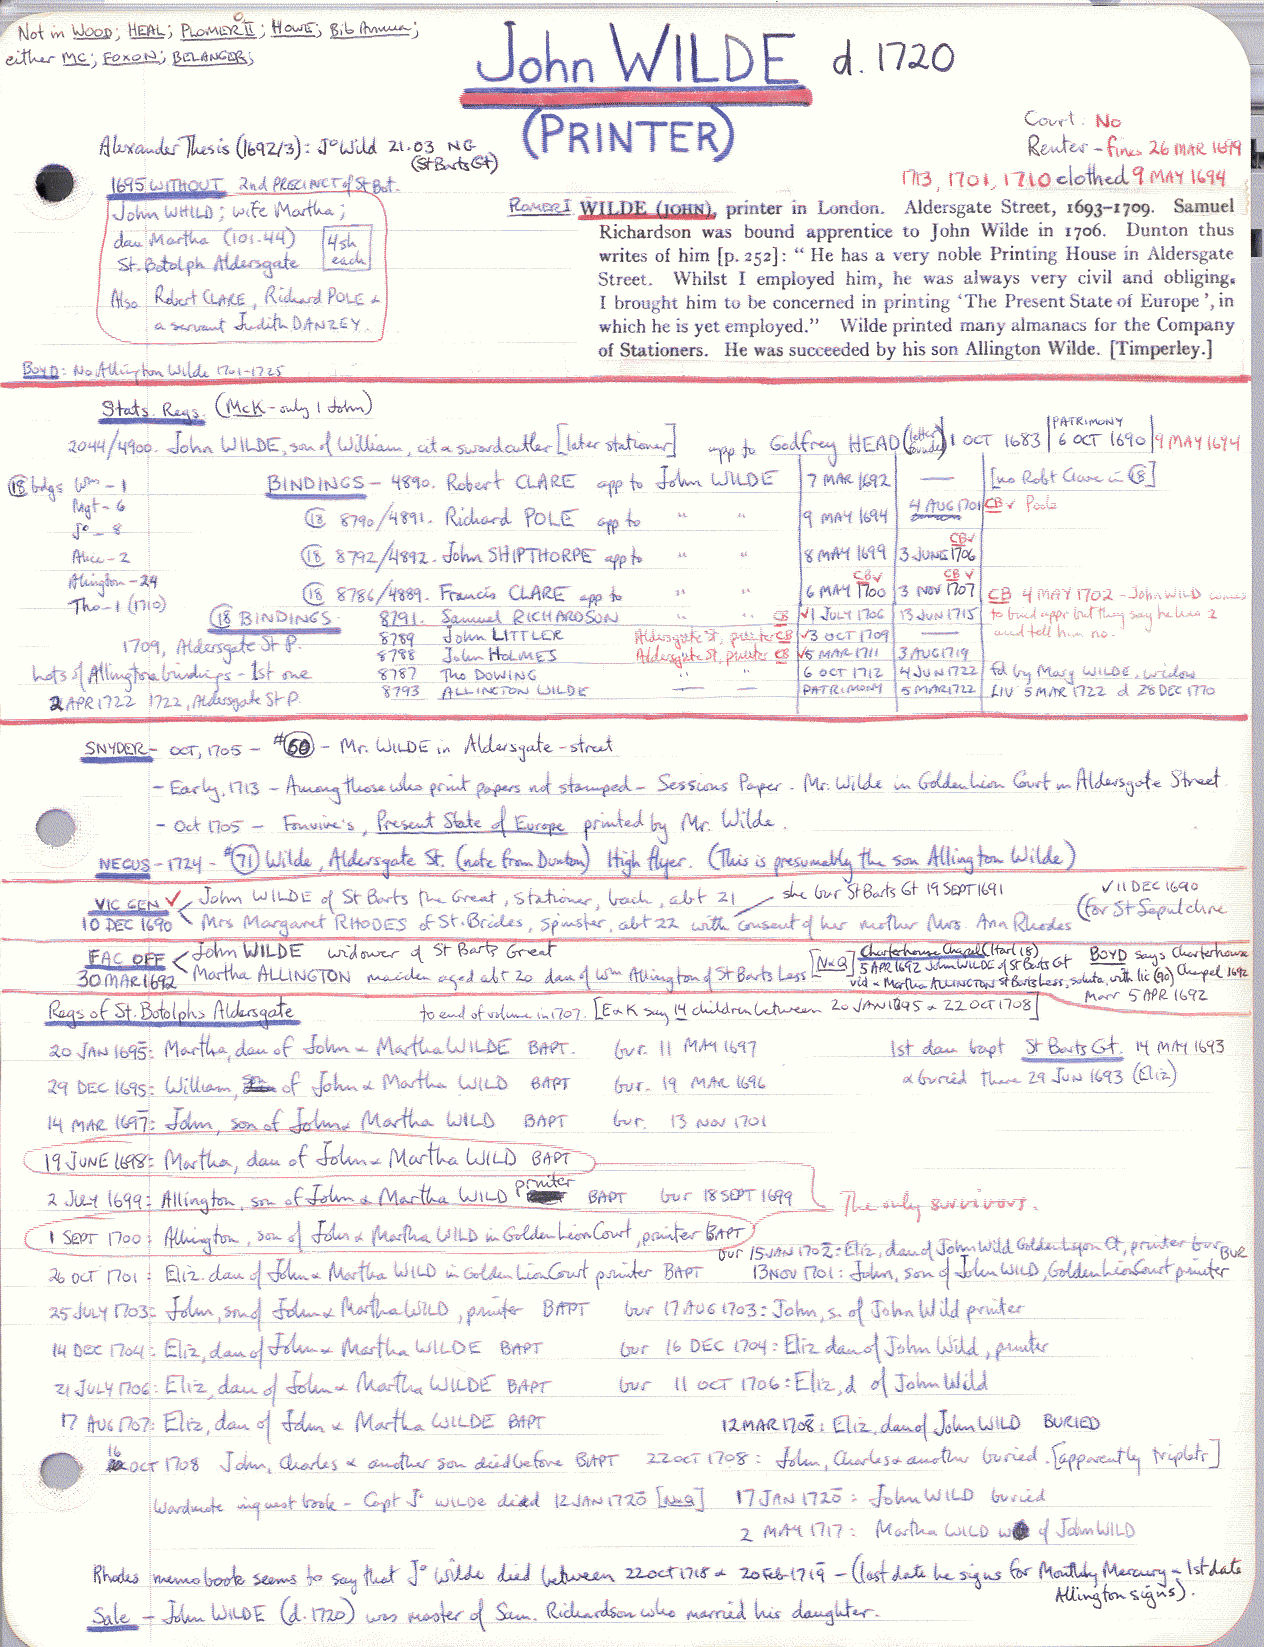 Not in WOOD; HEAL; PLOMER II; HOWE; Bib Annua;
either MC; FOXON; BELANGER;
John WILDE d. 1720
(PRINTER)
Court. No
Renter - fines 26 MAR 1699
1713, 1701, 1710 clothed 9 MAY 1694
Alexander Thesis (1692/3): Jo Wild 21.03 NG
(St Barts Gt)
1695 WITHOUT 2nd PRECINCT of St Bot.
John WHILD; wife Martha;
dau Martha (101.44) 4sh
St. Botolph Aldersgate each
Also Robert CLARE, Richard POLE &
a servant Judith DANZEY.
PLOMER I WILDE (JOHN), printer in London. Aldersgate Street, 1693-1709. Samuel
Richardson was bound apprentice to John Wilde in 1706. Dunton thus
writes of him [p. 252]: “ He has a very noble Printing House in Aldersgate
Street. Whilst I employed him, he was always very civil and obliging.
I brought him to be concerned in printing ‘The Present State of Europe’, in
which he is yet employed.” Wilde printed many almanacs for the Company
of Stationers. He was succeeded by his son Allington Wilde. [Timperley.]
BOYD: No Allington Wilde 1701-1725
Stats. Regs. (McK - only 1 John)
2044/4900. John WILDE, son of William, cit & swordcutler [later stationer] app to Godfrey HEAD (letter founder) 1 OCT 1683 PATRIMONY 6 OCT 1690 9 MAY 1694
18 bdgs Wm - 1 BINDINGS - 4890. Robert CLARE app to John WILDE 7 MAR 1692 — [no Robt Clare in 18]
Mgt - 6 18 8790/4891. Richard POLE app to " " 9 MAY 1694 4 AUG 1701 CB ✓ Poole
Jo - 8
Alice - 2 18 8792/4892. John SHIPTHORPE app to " " 8 MAY 1699 3 JUNE 1706 CB ✓
Alington - 24 18 8786/4889. Francis CLARE app to " " 6 MAY 1700 CB ✓ 3 NOV 1707 CB ✓ CB 4 MAY 1702 - John WILD comes
Tho - 1 (1710)
18 BINDINGS. 8791. Samuel RICHARDSON " " CB ✓ 1 JULY 1706 13 JUN 1715 to bind appr but they say he has 2
1709, Aldersgate St P. 8789 John LITTLER Aldersgate St, printer CB ✓ 3 OCT 1709 — and tell him no.
Lots of Allington bindings - 1st one 8788 John HOLMES Aldersgate St, printer CB ✓ 5 MAR 1711 3 AUG 1719
8787 Tho DOWING " " 6 OCT 1712 4 JUN 1722 fd by Mary WILDE, widow
2 APR 1722 1722, Aldersgate St P. 8793 ALLINGTON WILDE — — PATRIMONY 5 MAR 1722 LIV 5 MAR 1722 d 28 DEC 1770
SNYDER - OCT, 1705 - #60 - Mr. WILDE in Aldersgate-street
- Early, 1713 - Among those who print papers not stamped - Sessions Paper - Mr. Wilde in Golden Lion Court in Aldersgate Street.
- Oct 1705 - Fonvive's, Present State of Europe printed by Mr. Wilde.
NEGUS - 1724 - #71 Wilde, Aldersgate St. (note from Dunton) High flyer. (This is presumably the son Allington Wilde)
VIC GEN ✓ John WILDE of St Barts the Great, stationer, bach, abt 21 she bur St Barts Gt 19 SEPT 1691 ✓ 11 DEC 1690
10 DEC 1690 Mrs Margaret RHODES of St. Brides, Spinster, abt 22 with consent of her mother Mrs. Ann Rhodes (for St Sepulchre
FAC OFF John WILDE widower of St Barts Great
30 MAR 1692 Martha ALLINGTON maiden aged abt 20 dau of Wm Allington of St Barts Less
[N&Q] Charterhouse Chapel (Harl 18)
5 APR 1692 John WILDE of St Barts Gt
vid & Martha ALLINGTON St Barts Less, soluta, with lic (90)
BOYD says Charterhouse
Chapel 1692
Marr 5 APR 1692
Regs of St. Botolphs Aldersgate to end of volume in 1707. [E & K say 14 children between 20 JAN 1695 & 22 OCT 1708]
20 JAN 1695: Martha, dau of John & Martha WILDE BAPT. bur. 11 MAY 1697 1st dau bapt St Barts Gt. 14 MAY 1693
29 DEC 1695: William, of John & Martha WILD BAPT bur. 19 MAR 1696 & buried there 29 JUN 1693 (Eliz)
14 MAR 1697: John, son of John & Martha WILD BAPT bur. 13 NOV 1701
19 JUNE 1698: Martha, dau of John & Martha WILD BAPT
2 JULY 1699: Allington, son of John & Martha WILD printer BAPT bur 18 SEPT 1699 The only survivors.
1 SEPT 1700: Allington, son of John & Martha WILD in Golden Lion Court, printer BAPT
bur 15 JAN 1702: Eliz, dau of John Wild Golden Lyon Ct, printer bur
26 OCT 1701: Eliz. dau of John & Martha WILD in Golden Lion Court printer BAPT 13 NOV 1701: John, son of John WILD, Golden Lion Court printer BUR
25 JULY 1703: John, son of John & Martha WILD, printer BAPT bur 17 AUG 1703: John, s. of John Wild printer
14 DEC 1704: Eliz, dau of John & Martha WILDE BAPT bur 16 DEC 1704: Eliz dau of John Wild, printer
21 JULY 1706: Eliz, dau of John & Martha WILDE BAPT bur 11 OCT 1706: Eliz, d of John Wild
17 AUG 1707: Eliz, dau of John & Martha WILDE BAPT 12 MAR 1708: Eliz, dau of John WILD BURIED
16 OCT 1708 John, Charles & another son died before BAPT 22 OCT 1708: John, Charles & another buried. [apparently triplets]
Wardmote inquest book - Capt Jo WILDE died 12 JAN 1720 [N&Q] 17 JAN 1720: John WILD buried
2 MAY 1717: Martha WILD w of John WILD
Rhodes memo book seems to say that Jo Wilde died between 22 OCT 1718 & 20 Feb 1719 - (last date he signs for Monthly Mercury & 1st date
Allington signs).
Sale - John WILDE (d. 1720) was master of Sam. Richardson who married his daughter.